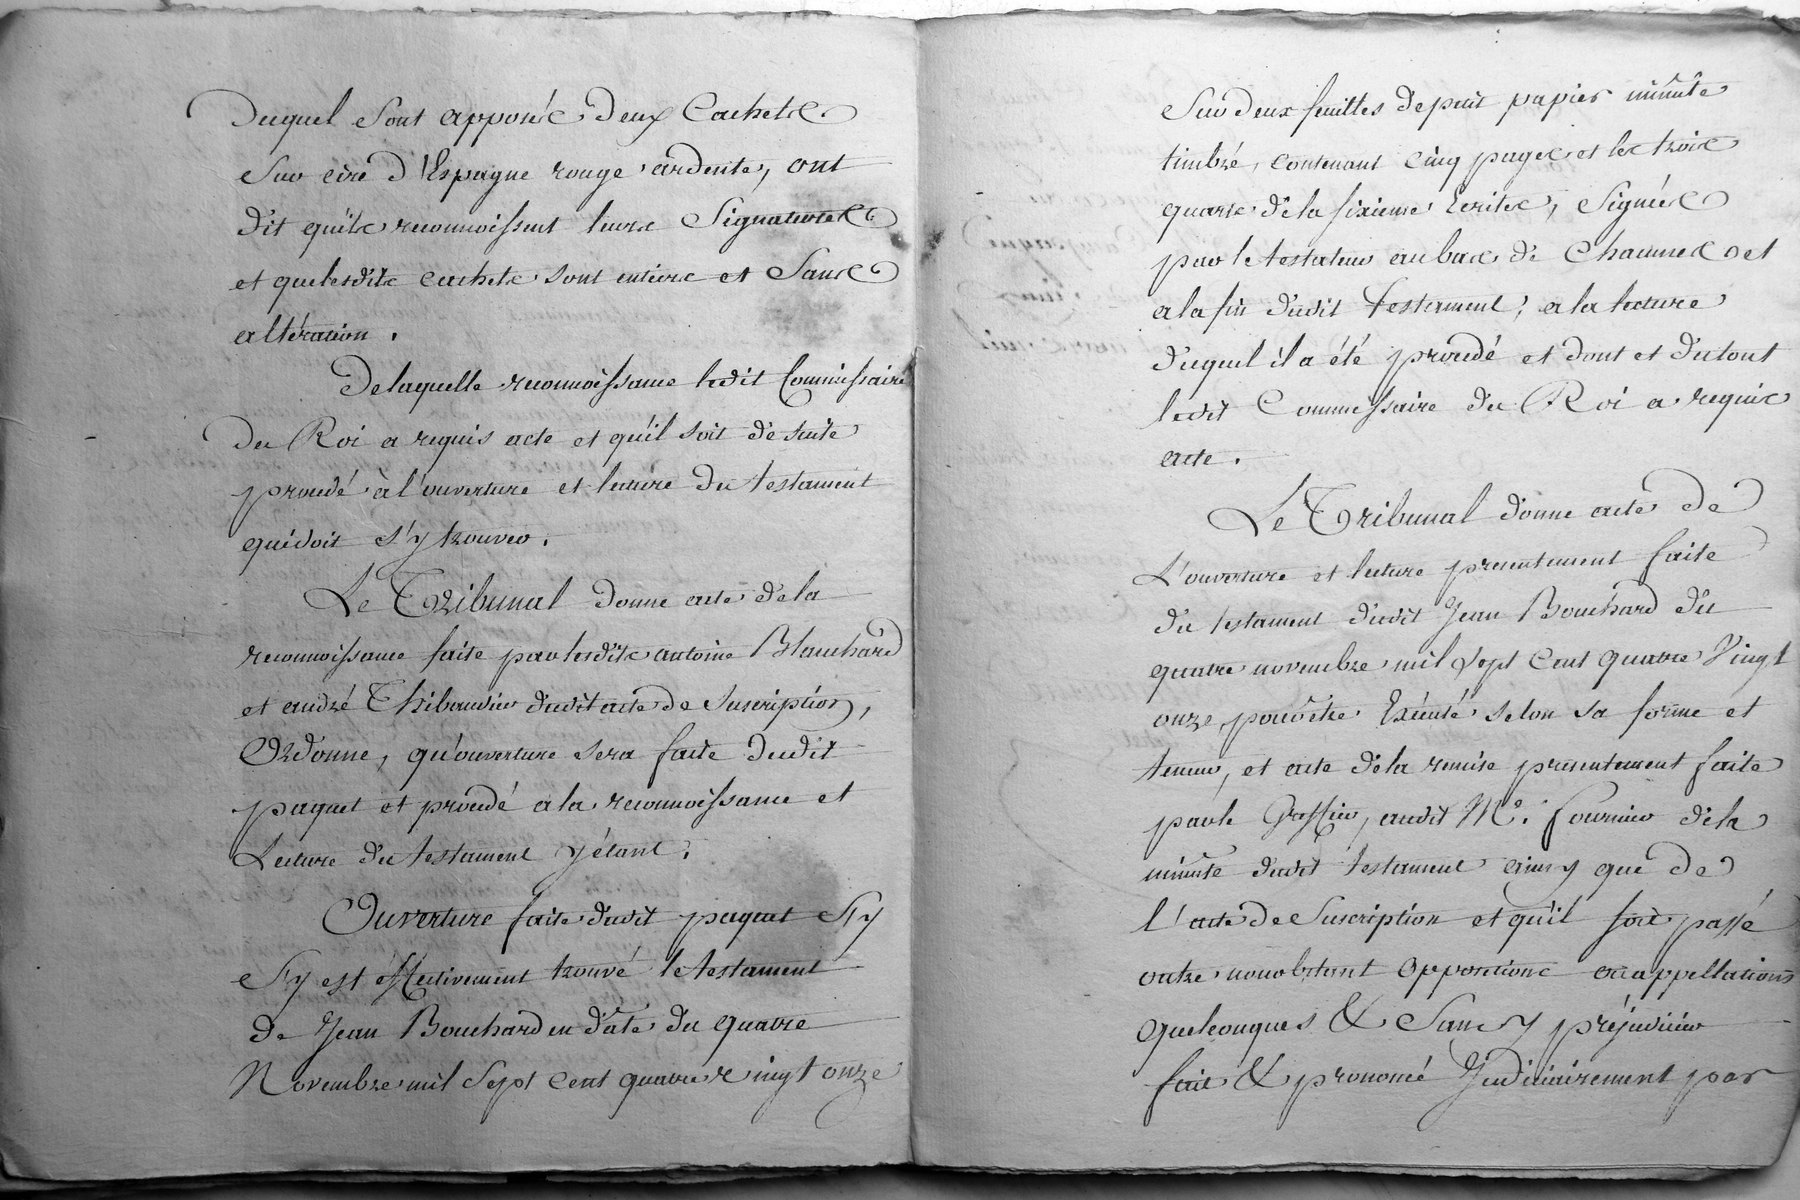 Duquel sont apposés deux Cachets
sur cire d'Espagne rouge ardente, ont
dit qu'ils reconnoissent leurs Signatures
et que lesdits cachets sont entiers et Sans
altération.
De laquelle reconnoissance ledit Commissaire
du Roi a requis acte et qu'il soit de suite
procedé à l'ouverture et lecture du testament
qui doit s'y trouver.
Le Tribunal donne acte de la
reconnoissance faite par lesdits antoine Blanchard
et andré Thibaudier dudit acte de Suscription,
Ordonne, qu'ouverture sera faite dudit
paquet et procedé a la reconnoissance et
Lecture du testament y étant.
Ouverture faite dudit paquet Il y
Il y est éffectivement trouvé le testament
de Jean Bouchard en date du quatre
Novembre mil Sept Cent quatre vingt onze
Sur deux feuilles de petit papier minute
timbré, contenant cinq pages et les trois
quarts de la sixieme Ecrites, Signées
par le testateur au bas de Chaunes et
a la fin dudit testament, a la lecture
duquel il a été procedé et dont et du tout
ledit Commissaire du Roi a requis
acte.
Le Tribunal donne acte de
L'ouverture et lecture presentement faite
du testament dudit Jean Bouchard du
quatre novembre mil Sept Cent quatre Vingt
onze, pour être Exécuté selon sa forme et
teneur, et acte de la remise presentement faite
par le Greffier, audit Me. Fournier de la
minute dudit testament ainsy que de
l'acte de Suscription et qu'il soit passé
outre nonobstant oppositions ou appellations
quelconques & Sans y préjudicier
fait & prononcé Judiciairement par